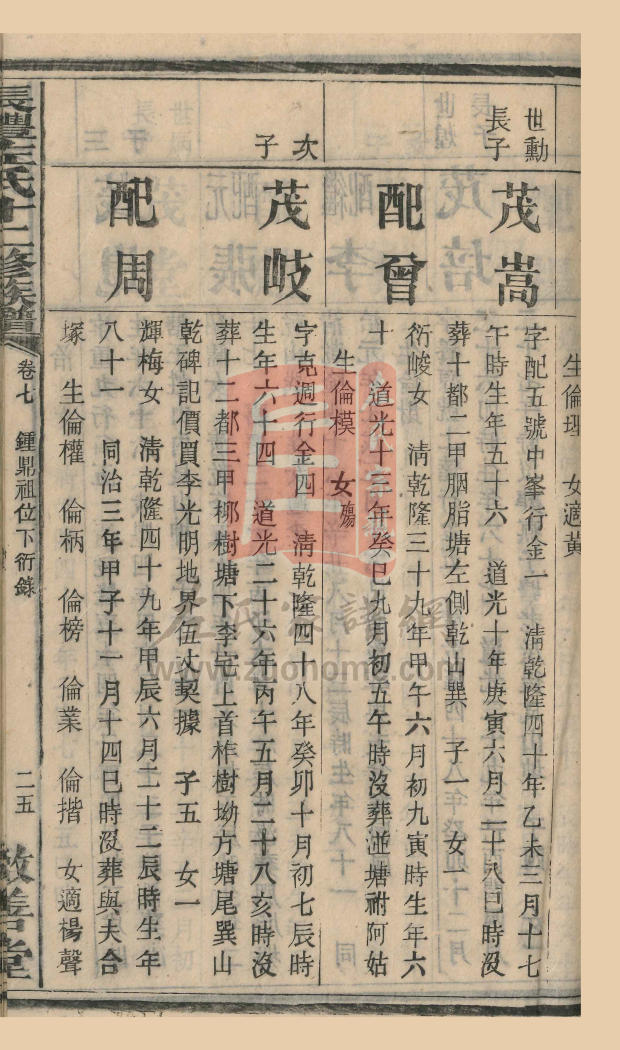 生倫理 女適黃
世勳
長子
茂嵩
字配五號中峯行金一 清乾隆四十年乙未三月十七
午時生年五十六 道光十年庚寅六月二十八巳時沒
葬十都二甲胭脂塘左側乾山巽 子一 女一
配曾
衍峻女 清乾隆三十九年甲午六月初九寅時生年六
十 道光十三年癸巳九月初五午時沒葬泚塘祔阿姑
生倫模 女殤
次
子
茂岐
字克週行金四 清乾隆四十八年癸卯十月初七辰時
生年六十四 道光二十六年丙午五月二十八亥時沒
葬十二都三甲栁樹塘下李宅上首柞樹坳方塘尾巽山
乾碑記價買李光明地界伍丈契據 子五 女一
配周
輝梅女 清乾隆四十九年甲辰六月二十二辰時生年
八十一 同治三年甲子十一月十四巳時沒葬與夫合
塚 生倫權 倫柄 倫榜 倫業 倫揩 女適楊聲
長澧左氏十二修族譜
卷七 鍾鼎祖位下衍錄
二五
敦善堂
左氏家譜網
www.zuohome.com